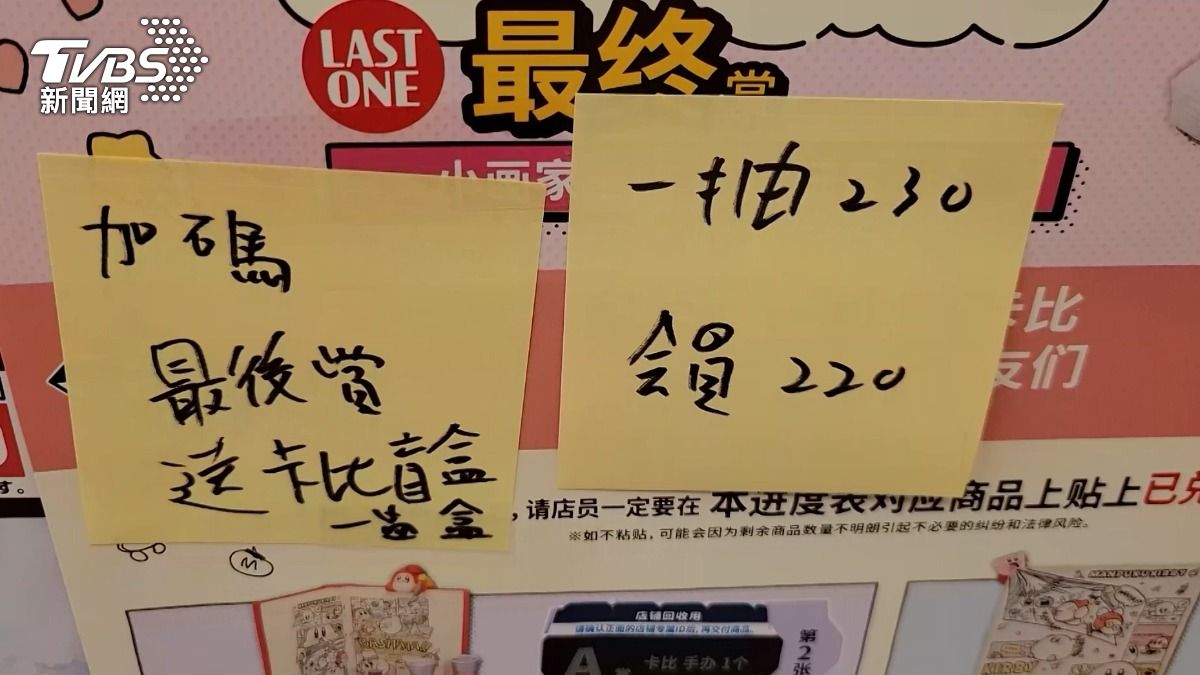 TVBS
新聞網
LAST
ONE
最终赏
小画家
加碼
最後賞
送卡比盲盒
一抽230
會員220
卡比
友们
，请店员一定要在 本进度表对应商品上贴上已兑
※如不粘贴，可能会因为剩余商品数量不明朗引起不必要的纠纷和法律风险。
す。
MANPUKU KIRBY
店铺回收用
请确认正面的店铺专属ID后，再交付商品。
A
卡比 手办 1个
第2张
KIRBY